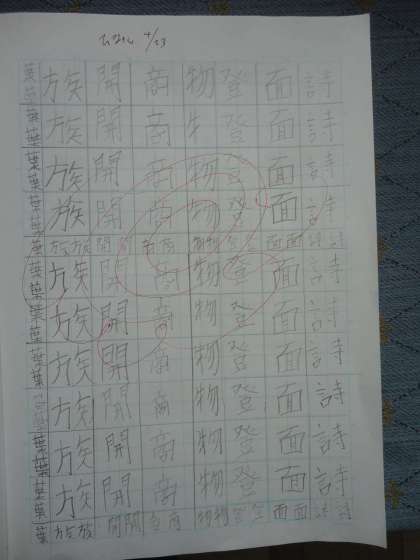 4/23
葉 族 開 商 物 登 面 詩
葉 族 開 商 物 登 面 詩
葉 族 開 商 物 登 面 詩
葉 族 開 商 物 登 面 詩
葉 族族 開開 商商 物物 登登 面面 詩詩
葉 族 開 商 物 登 面 詩
葉 族 開 商 物 登 面 詩
葉 族 開 商 物 登 面 詩
葉 族 開 商 物 登 面 詩
葉 族 開 商 物 登 面 詩
葉 族 開 商 物 登 面 詩
葉 族族 開開 商商 物物 登登 面面 詩詩